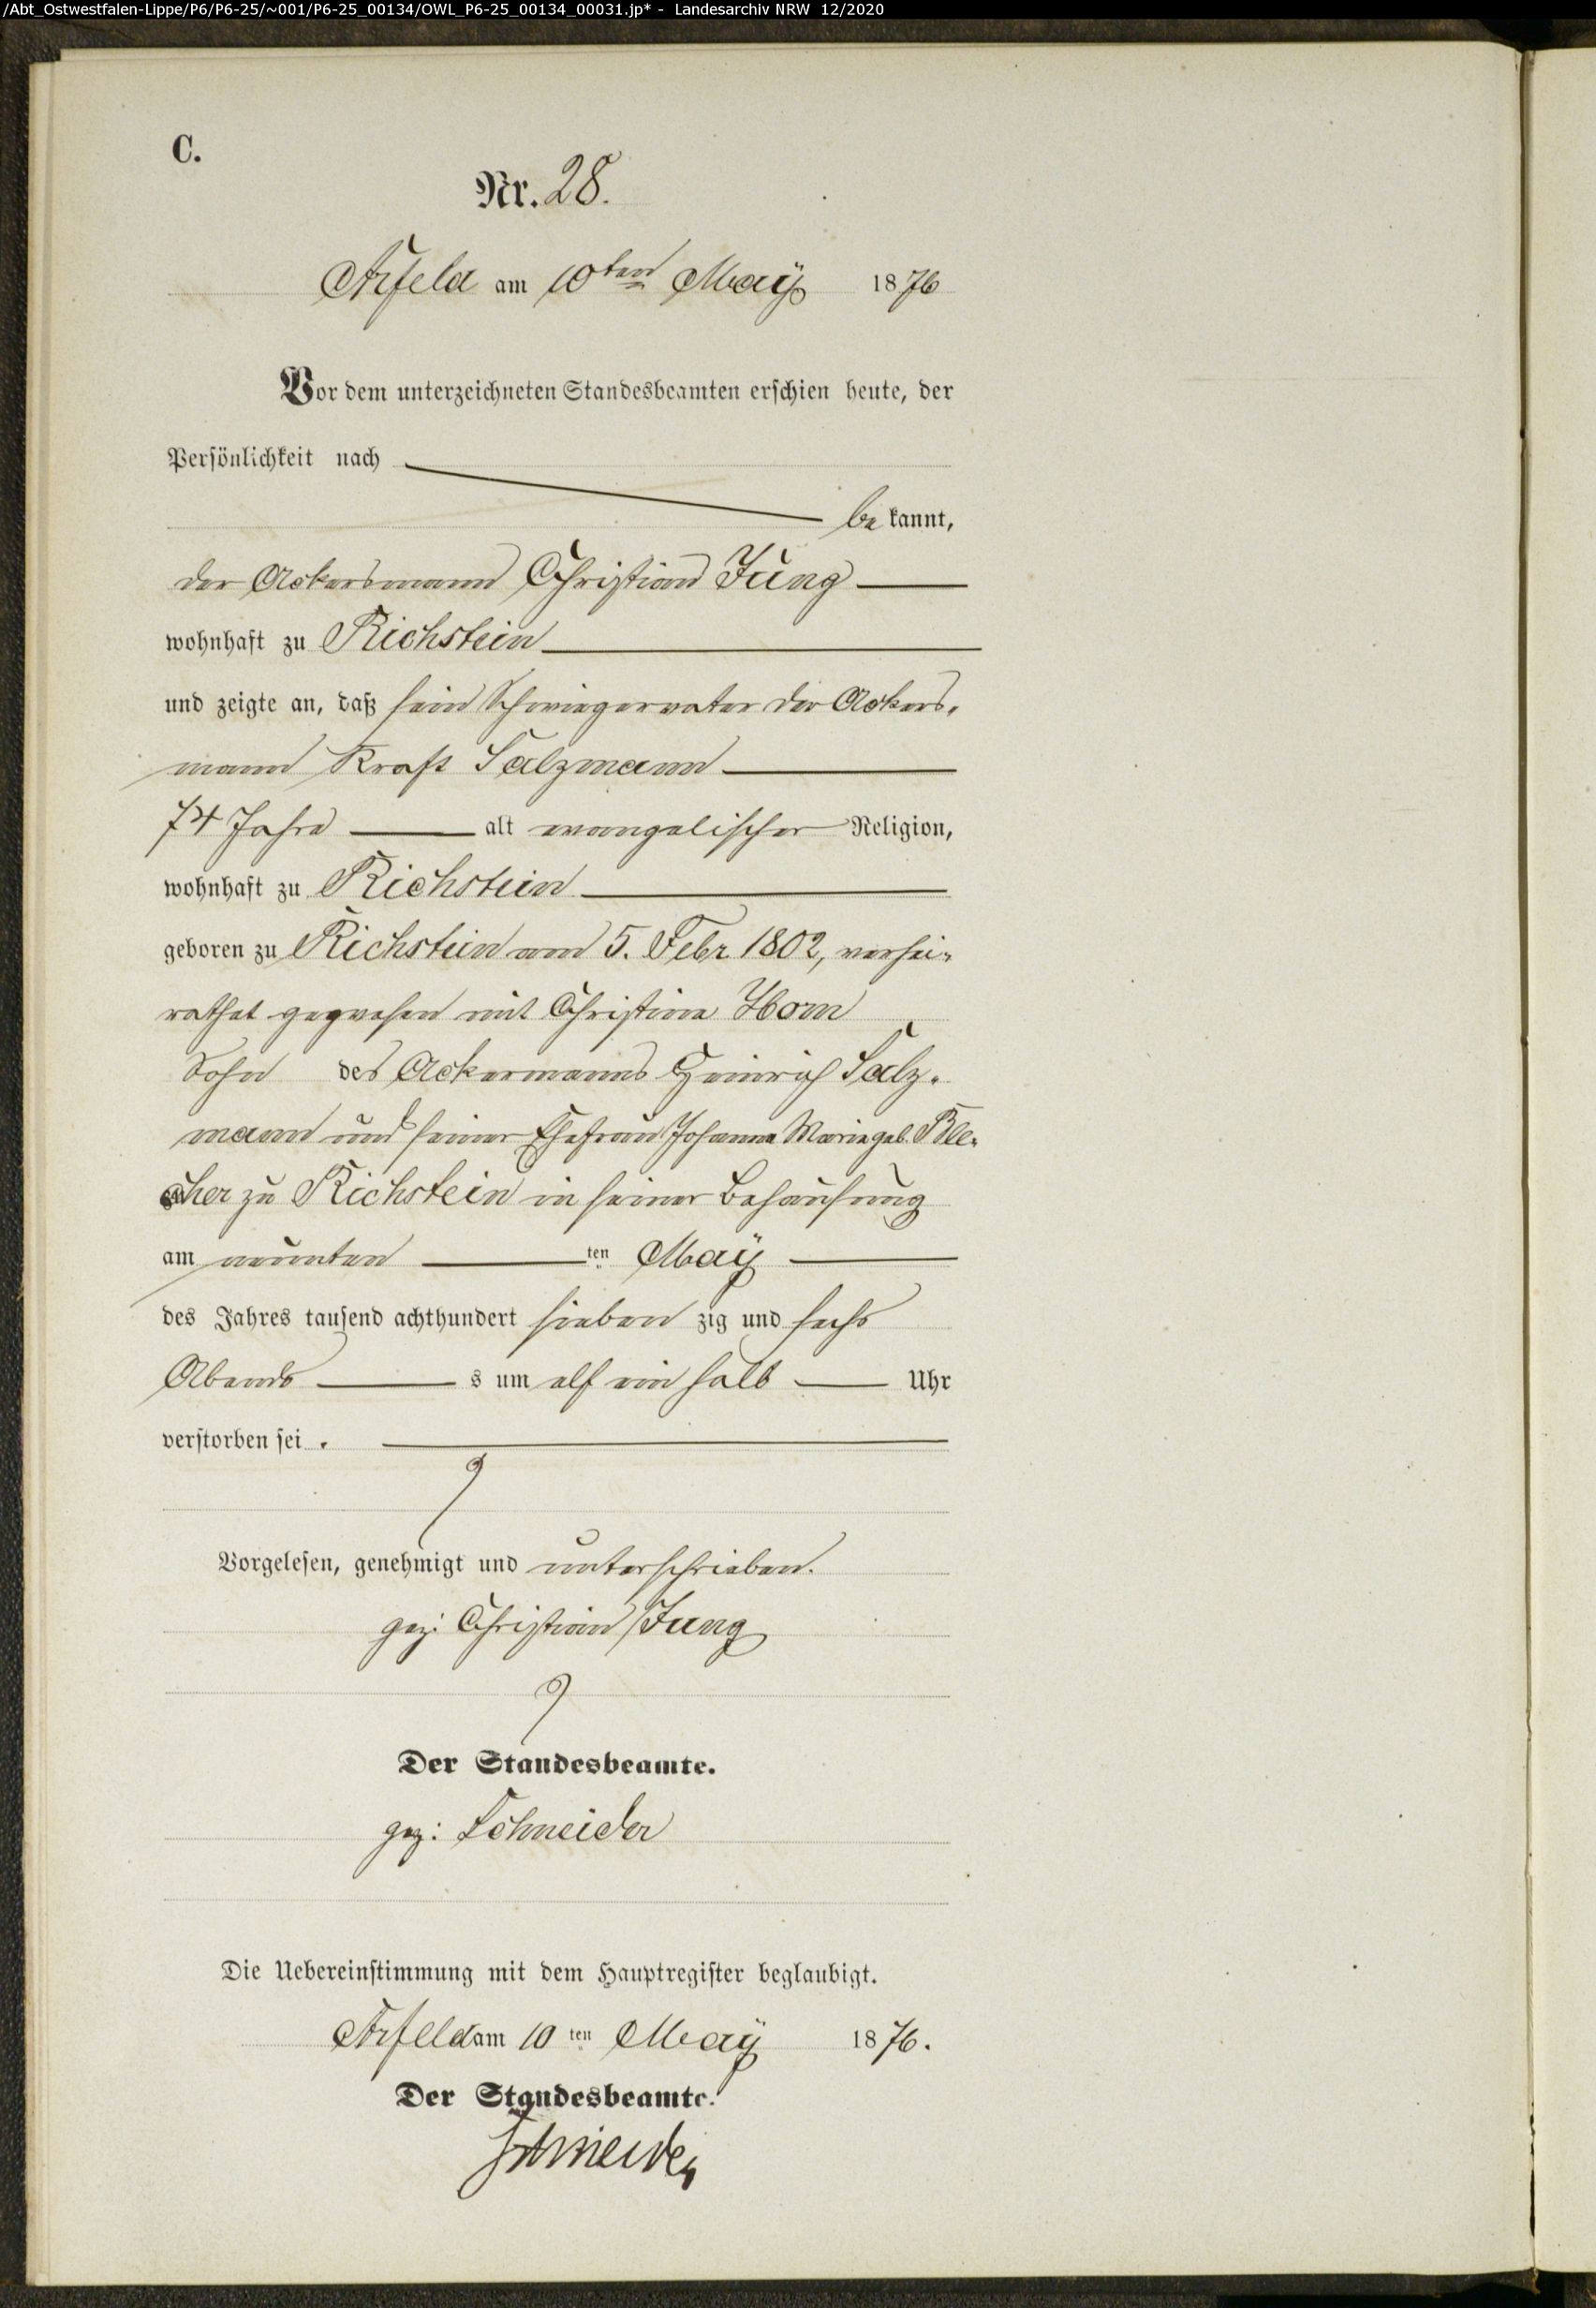 /Abt_Ostwestfalen-Lippe/P6/P6-25/~001/P6-25_00134/OWL_P6-25_00134_00031.jp* - Landesarchiv NRW 12/2020
C.
Nr. 28.
Arfeld am 10ten Maÿ 1876
Vor dem unterzeichneten Standesbeamten erschien heute, der
Persönlichkeit nach
be kannt,
der Ackersmann Christian Jung
wohnhaft zu Richstein
und zeigte an, daß sein Schwiegervater der Ackers-
mann Kraft Salzmann
74 Jahre alt evangelischer Religion,
wohnhaft zu Richstein
geboren zu Richstein am 5. Febr 1802, verhei-
rathet gewesen mit Christina Horn
Sohn des Ackermanns Heinrich Salz-
mann und seiner Ehefrau Johanna Marie geb. Ble-
cher zu Richstein in seiner Behausung
am neunten ten Maÿ
des Jahres tausend achthundert sieben zig und sechs
Abends s um elf ein halb Uhr
verstorben sei .
Vorgelesen, genehmigt und unterschrieben.
gez: Christian Jung
Der Standesbeamte.
gez: Schneider
Die Uebereinstimmung mit dem Hauptregister beglaubigt.
Arfeld am 10 ten Maÿ 1876.
Der Standesbeamte.
Schneider